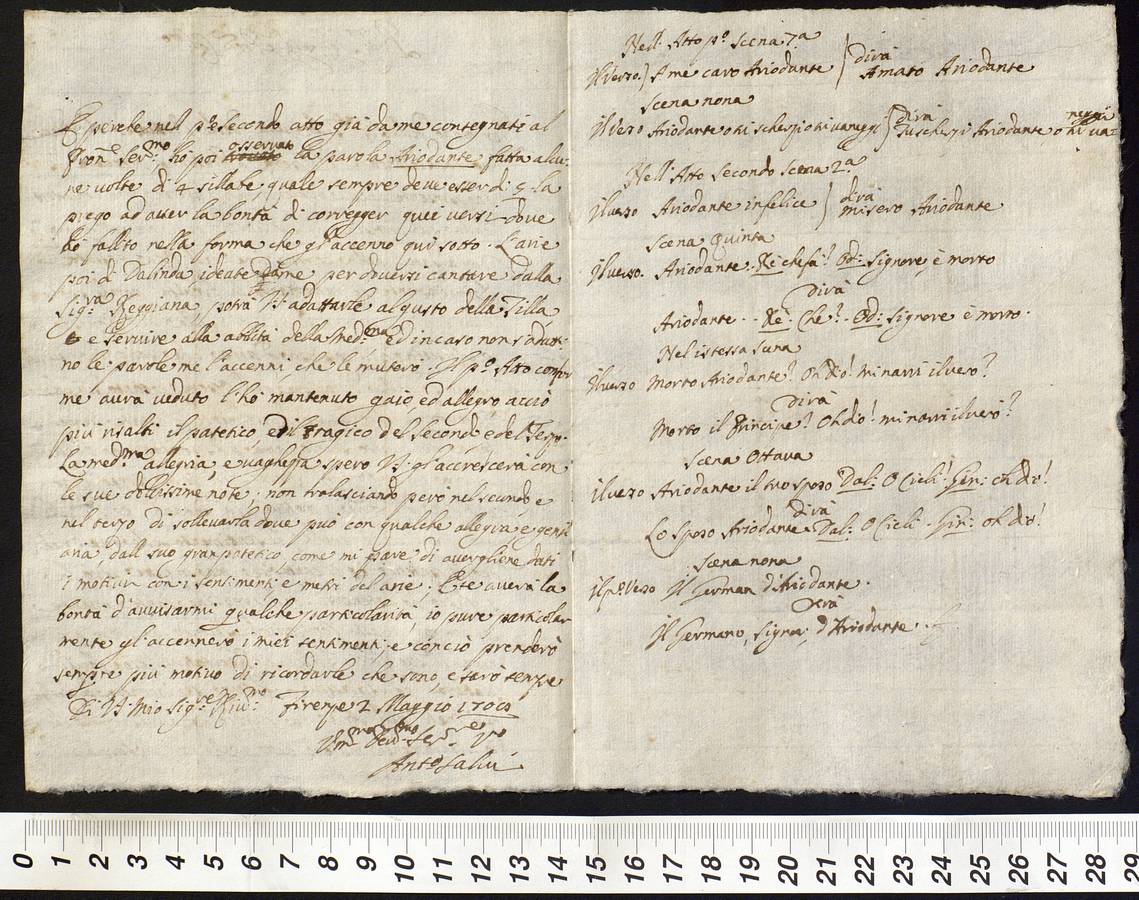 E perche nel p.o e secondo atto già da me consegnati al
Pron.e Ser.mo ho poi osservato la parola Ariodante fatta alcu-
ne volte di 4 sillabe quale sempre deve esser di 5 la
priego ad aver la bontà di corregger quei versi dove
ho fallito nella forma che gl'accenno qui sotto. L'arie
poi di Dalinda ideate da me per doversi cantare dalla
Sig.ra Reggiana, potrà V.S. adattarle al gusto della Tilla
e servire alla abilità della med.ma ed in caso non s'adatti-
no le parole me l'accenni, che le muterò. Il p.o Atto confor
me aurà veduto l'hò mantenuto gaio, ed allegro acciò
più risalti il patetico, ed il tragico del secondo e del Terzo.
La med.ma allegria, e vaghezza spero V.S. gl'accrescerà con
le sue dolcissime note; non tralasciando però nel secondo e
nel terzo di sollevarla dove può con qualche allegria, e gentil
aria, dall suo gran patetico come mi pare di avergliene dati
i motivi con i sentimenti e metri del arie; E se averà la
bontà d'avvisarmi qualche particolarità, io pure particolar
mente gl'accennerò i miei sentimenti; e con ciò prenderò
sempre più motivo di ricordarle che sono, e sarò sempre
Di V.S. Mio Sig.re Riv.mo Firenze 2 Maggio
Ant.o Salvi
Nell' Atto p.o Scena 7.a
Il verso) A me caro Ariodante ) dirà Amato Ariodante
Scena nona
Il verso Ariodante o tu scherzi o tu vaneggi ( dirà Tu scherzi Ariodante, o tu va=
neggi
Nell' Atto Secondo Scena 2.a
Il verso Ariodante infelice ) dirà misero Ariodante
Scena Quinta
Il verso. Ariodante. Rè che fù? Od: Signore, è morto
Dirà
Ariodante . . Rè. Che? . Od: Signore è morto.
Nel istessa scena
Il verso Morto Ariodante? Oh dio! mi narri il vero?
Dirà
Morto il Principe? Oh dio! mi narri il vero?
Scena Ottava
il verso Ariodante il tuo sposo Dal: O Cieli! Gin: oh dio!
dirà
Lo Sposo Ariodante Dal: O Cieli. Gin: oh dio!
Scena nona
il p.o Verso Il German d'Ariodante.
Dirà
Il Germano, Signor, d'Ariodante . .